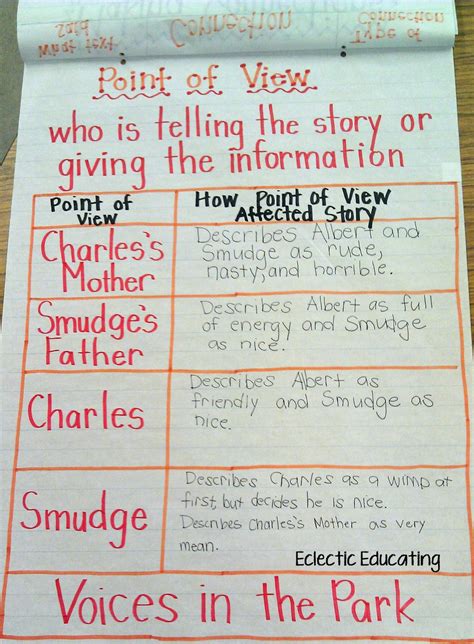 What text
Said
Connection
Type of
Connection
Point of View
who is telling the story or
giving the information
Point of
View
How Point of View
Affected Story
Charles's
Mother
Describes Albert and
Smudge as rude,
nasty, and horrible.
Smudge's
Father
Describes Albert as full
of energy and Smudge
as nice.
Charles
Describes Albert as
friendly and Smudge as
nice.
Smudge
Describes Charles as a wimp at
first, but decides he is nice.
Describes Charles's Mother as very
mean.
Eclectic Educating
Voices in the Park